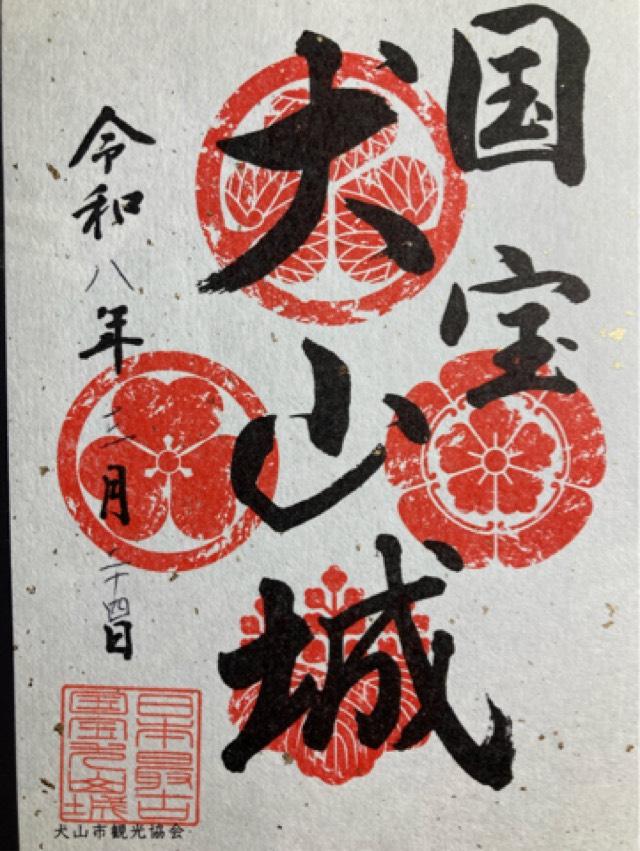 国宝
犬山城
令和八年三月二十四日
日本最古
犬山市観光協会